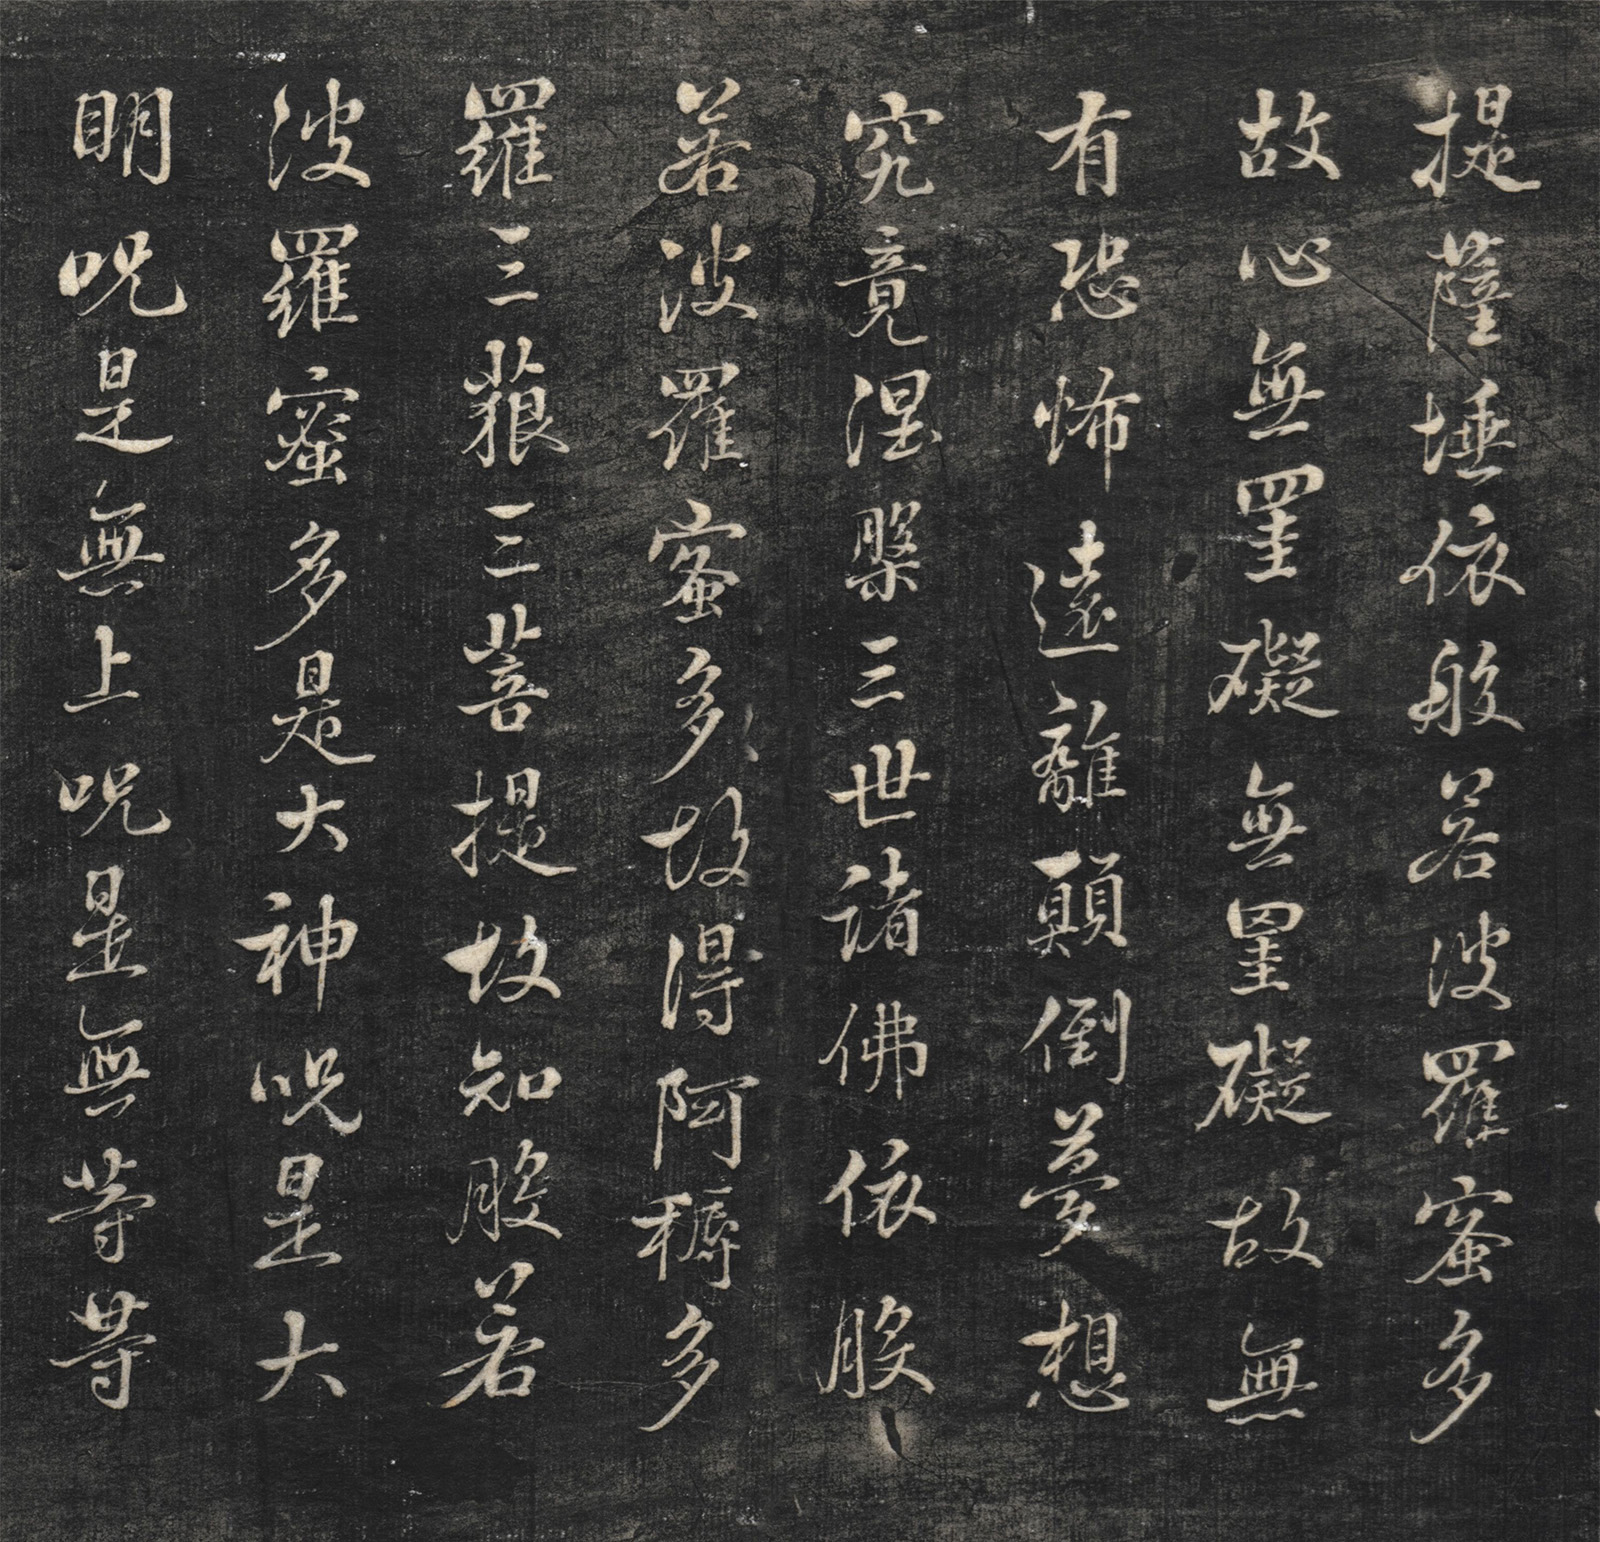 提薩埵依般若波羅蜜多
故心無罣礙無罣礙故無
有恐怖遠離顛倒夢想
究竟涅槃三世諸佛依般
若波羅蜜多故得阿耨多
羅三藐三菩提故知般若
波羅蜜多是大神呪是大
明呪是無上呪是無等等